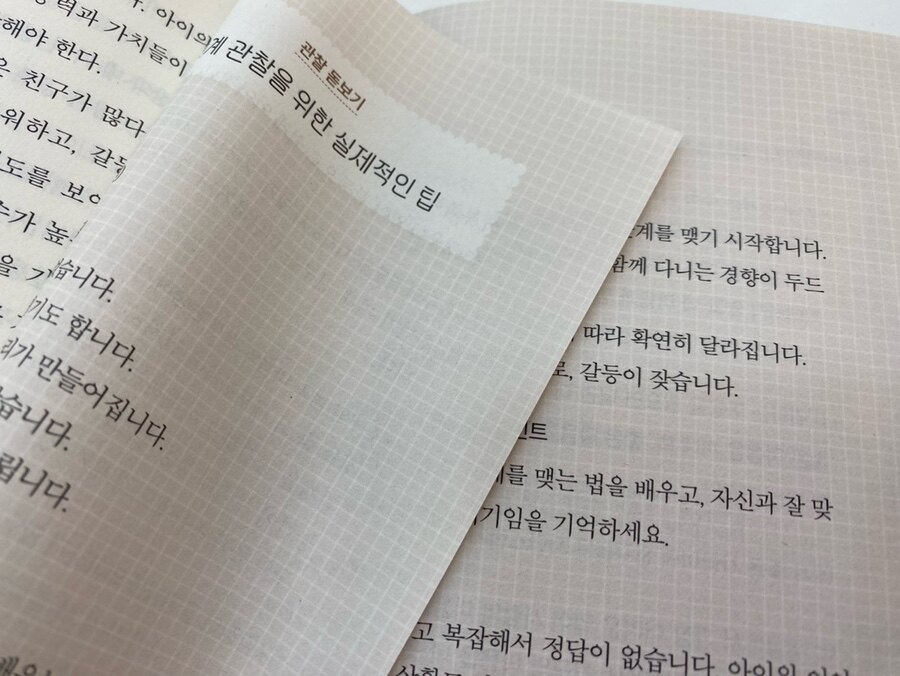 아이의
력과 가치들이
해야 한다.
친구가 많다
워하고, 갈등
도를 보이
수가 높
을
관찰 돋보기
관찰을 위한 실제적인 팁
습니다.
기도 합니다.
가 만들어집니다.
습니다.
됩니다.
계를 맺기 시작합니다.
함께 다니는 경향이 두드
따라 확연히 달라집니다.
로, 갈등이 잦습니다.
인트
를 맺는 법을 배우고, 자신과 잘 맞
기임을 기억하세요.
고 복잡해서 정답이 없습니다. 아이의